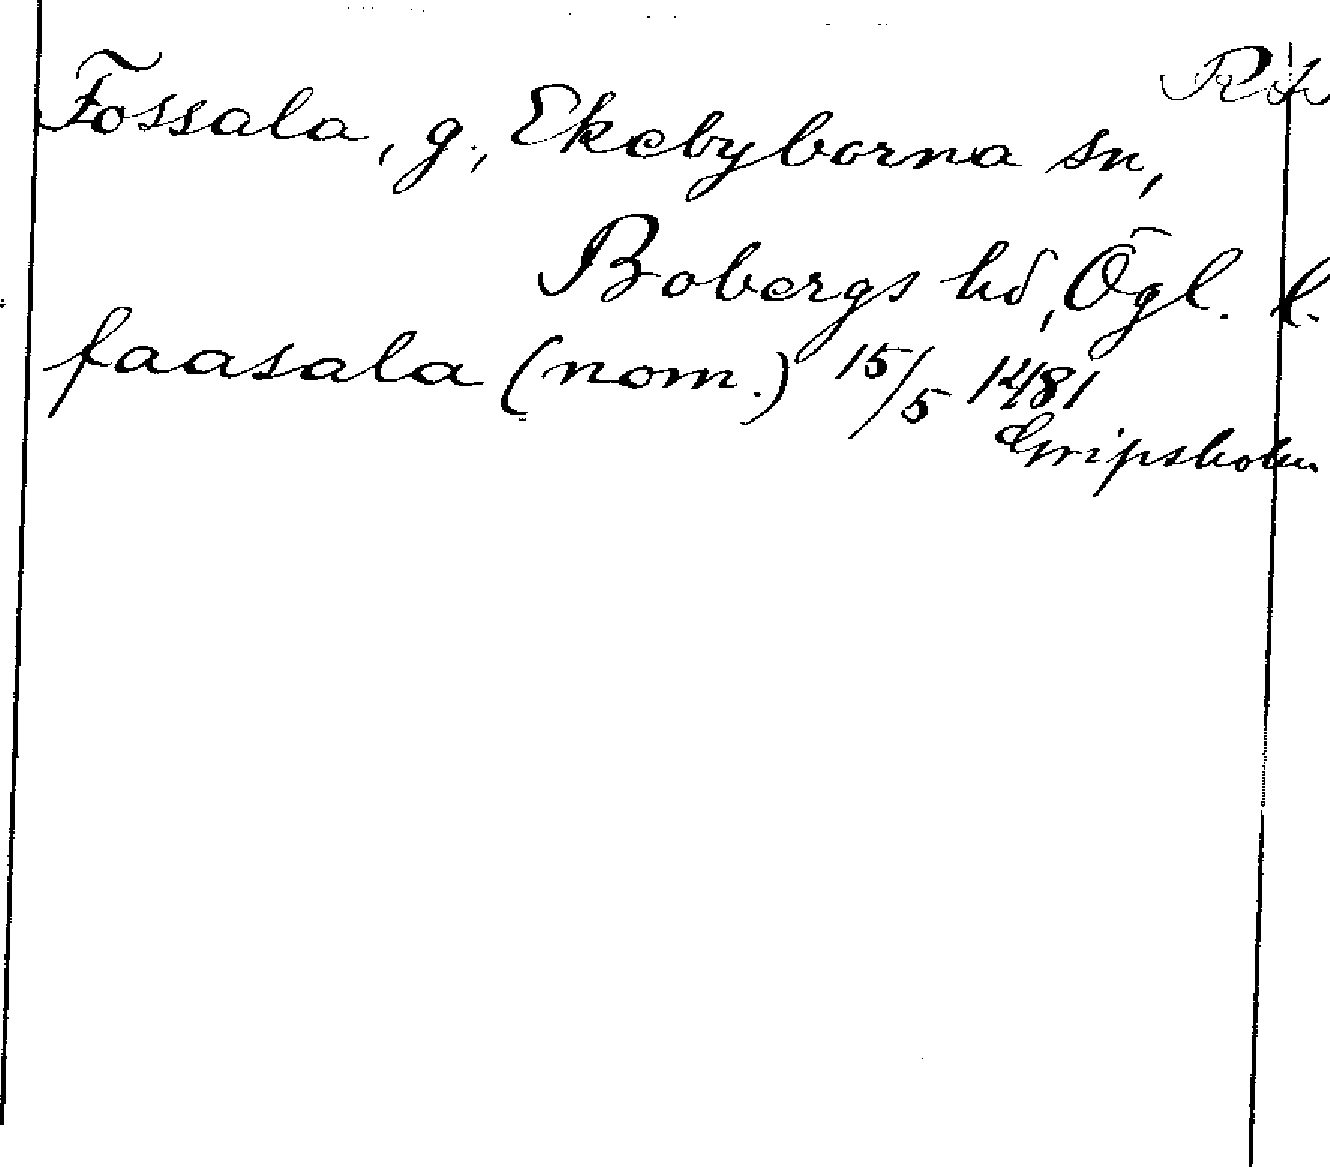 Rä
Fossala, g., Ekebyborna sn,
Bobergs hd, Ögl. l.
faasala (nom.) 15/5 1481
Gripsholm